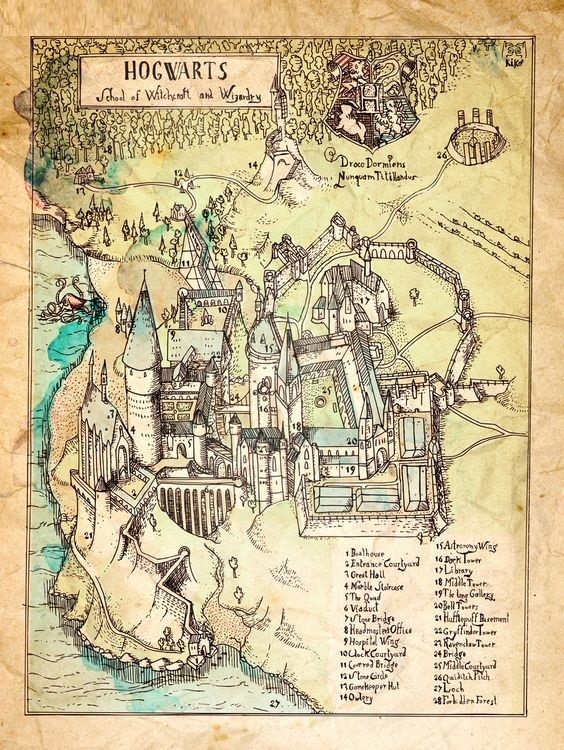 HOGWARTS
School of Witchcraft and Wizardry
KiKo
Draco Dormiens
Nunquam Titillandus
28
14
26
13
12
11
10
17
8
9
15
7
16
25
4
5
18
20
19
2
21
27
1 Boathouse
2 Entrance Courtyard
3 Great Hall
4 Marble Staircase
5 The Quad
6 Viaduct
7 Stone Bridge
8 Headmasters Office
9 Hospital Wing
10 Clock Courtyard
11 Covered Bridge
12 Stone Circle
13 Gamekeeper Hut
14 Owlery
15 Astronomy Wing
16 Dark Tower
17 Library
18 Middle Tower
19 The Long Gallery
20 Bell Towers
21 Hufflepuff Basement
22 Gryffindor Tower
23 Ravenclaw Tower
24 Bridge
25 Middle Courtyard
26 Quiditch Pitch
27 Loch
28 Forbidden Forest